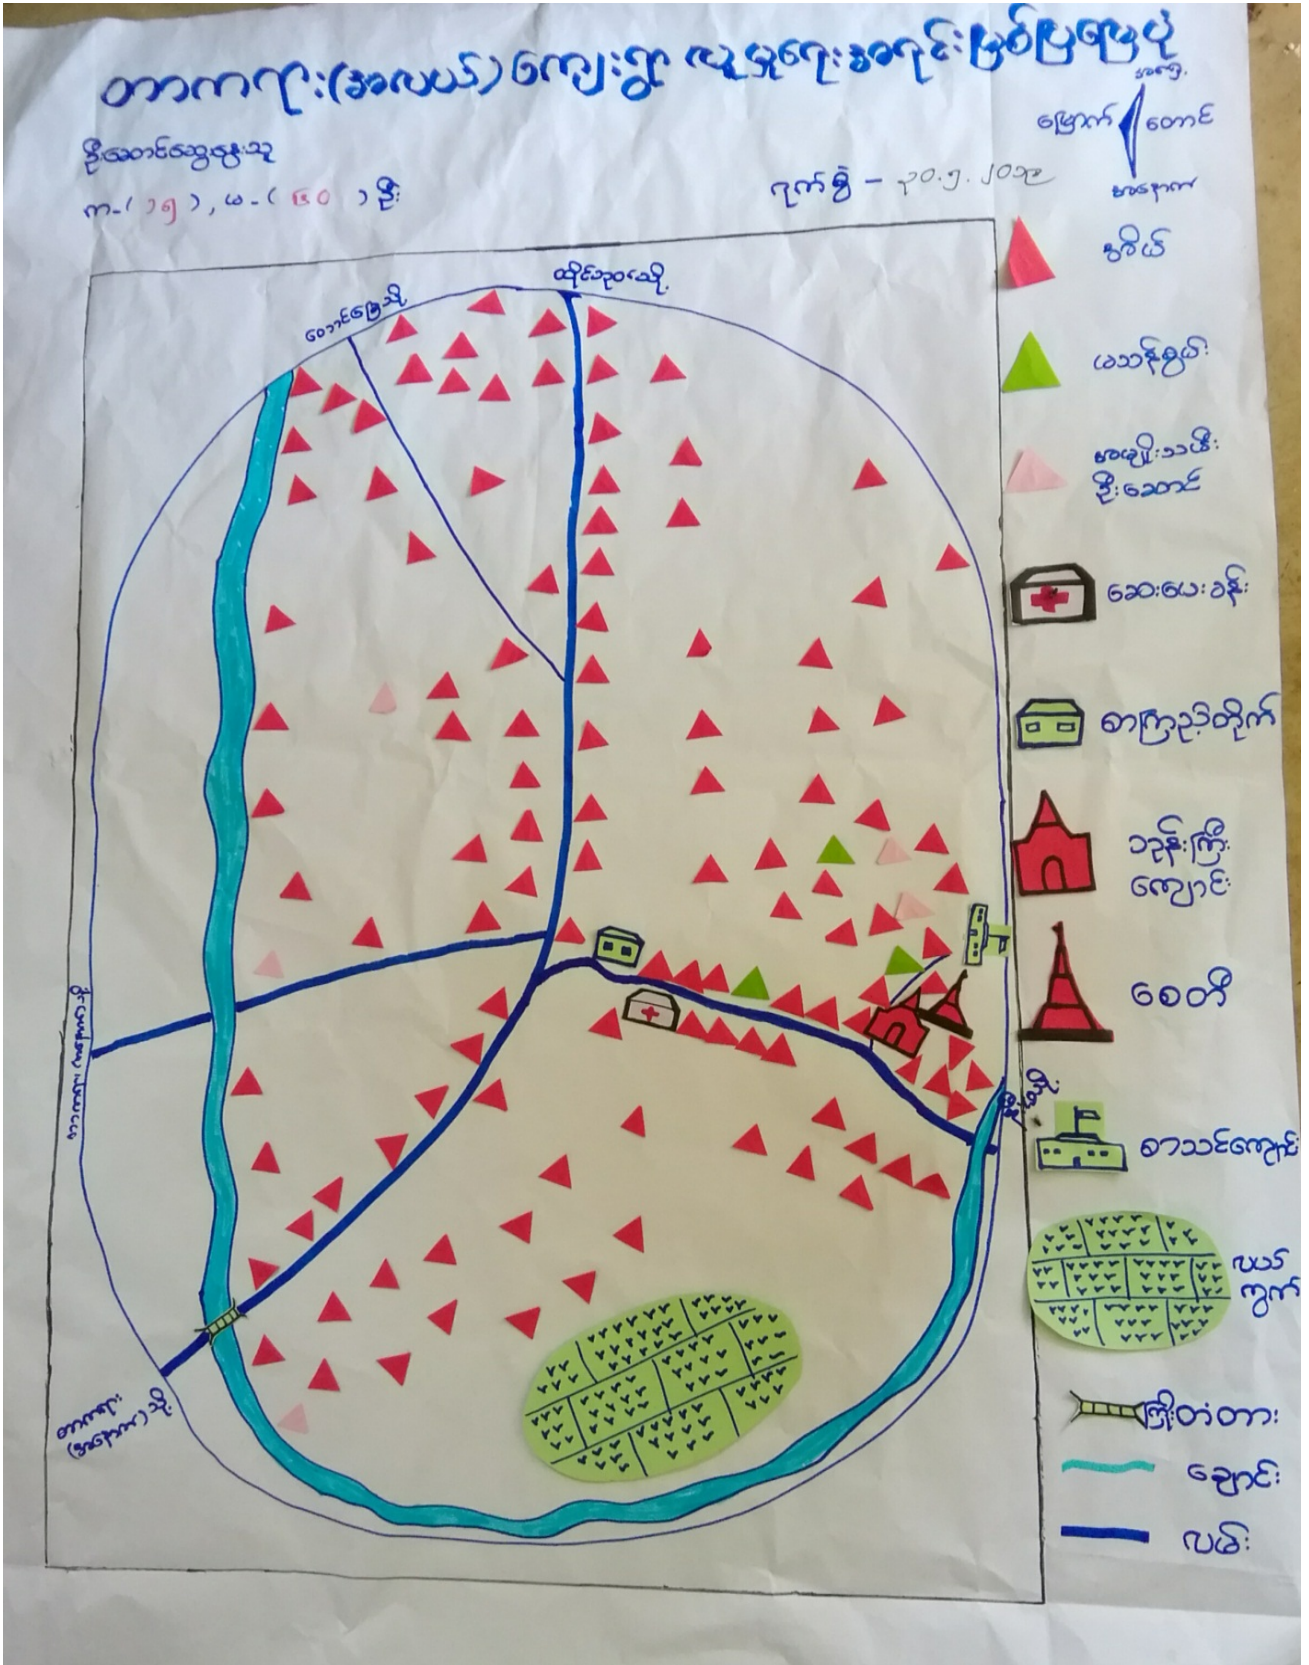 တာကရား(အလယ်)ကျေးရွာ လူမှုရေးအရင်းမြစ်ပြမြေပုံ
ဦးဆောင်ဆွေးနွေးသူ
က-(၁၅), မ-(၉၀) ဦး
ရက်စွဲ - ၃၀.၅.၂၀၁၉
အရှေ့
မြောက်
တောင်
အနောက်
အိမ်
မသန်စွမ်း
အမျိုးသမီး
ဦးဆောင်
ဆေးပေးခန်း
စာကြည့်တိုက်
ဘုန်းကြီး
ကျောင်း
စေတီ
စာသင်ကျောင်း
လယ်
ကွက်
ကြိုးတံတား
ချောင်း
လမ်း
တောင်မြေသို့
တာကရား
(အနောက်)သို့